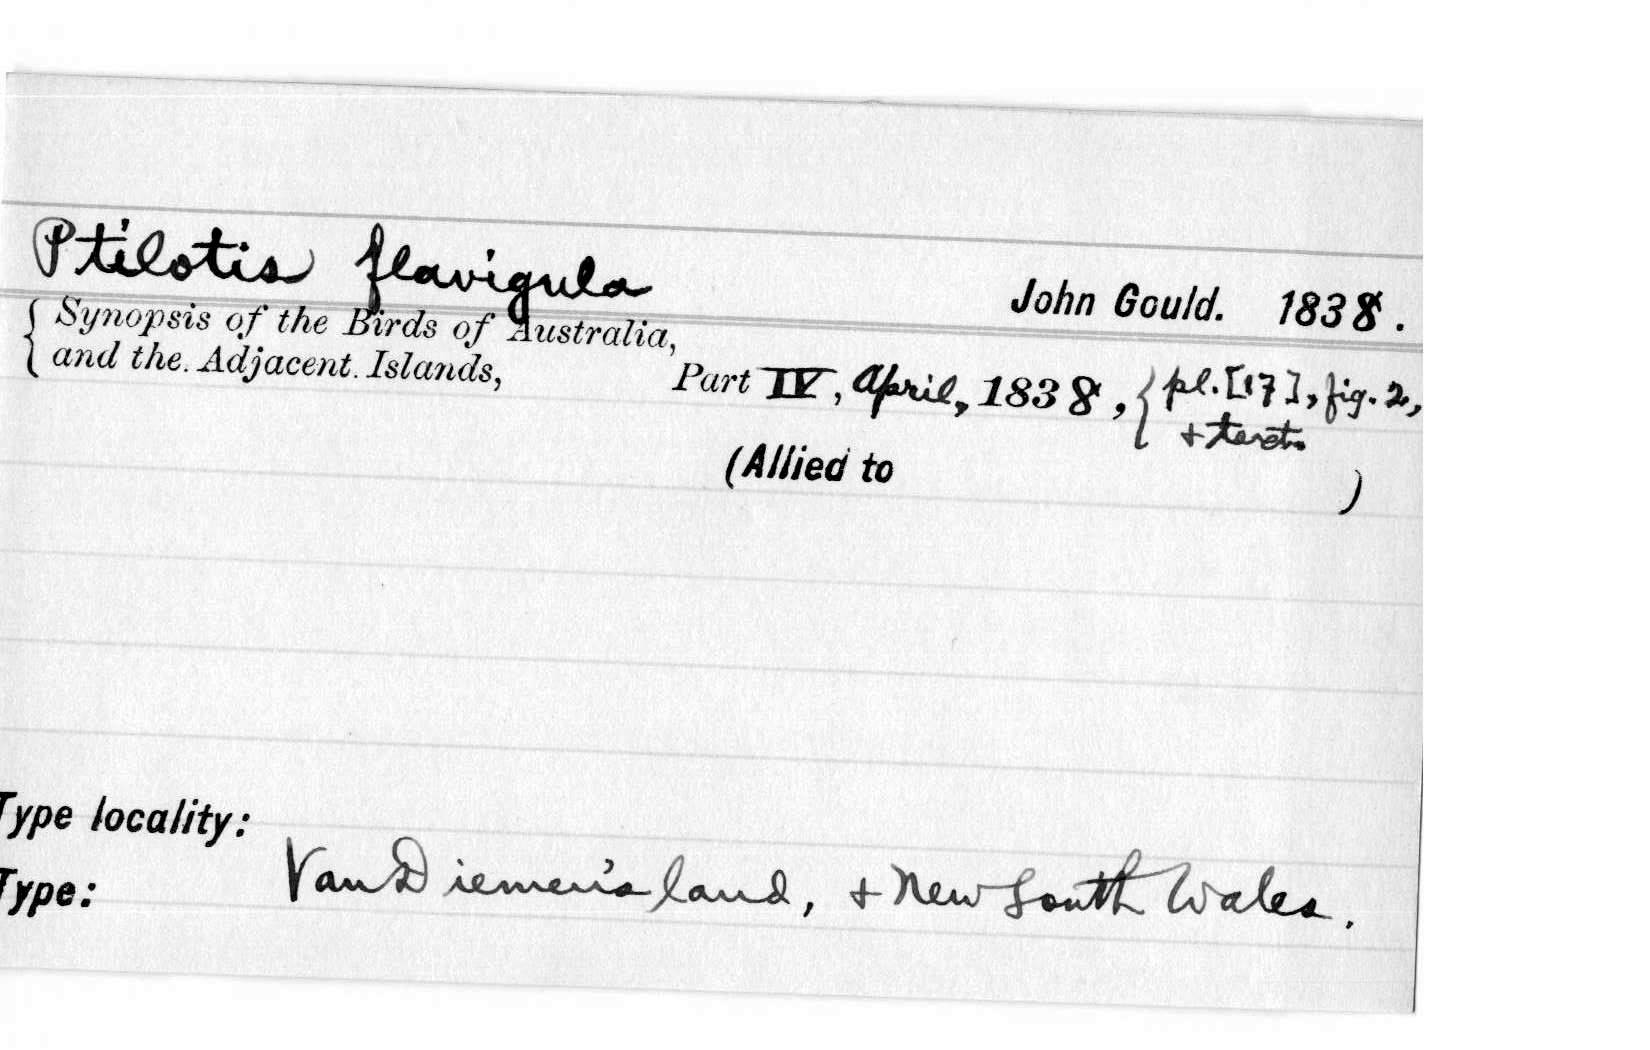 Ptilotis flavigula
John Gould. 1838.
{ Synopsis of the Birds of Australia,
and the Adjacent Islands, Part IV, April, 1838, { pl. [17], fig. 2,
+ text.
(Allied to )
Type locality:
Van Diemen's land, + New South Wales.
Type: